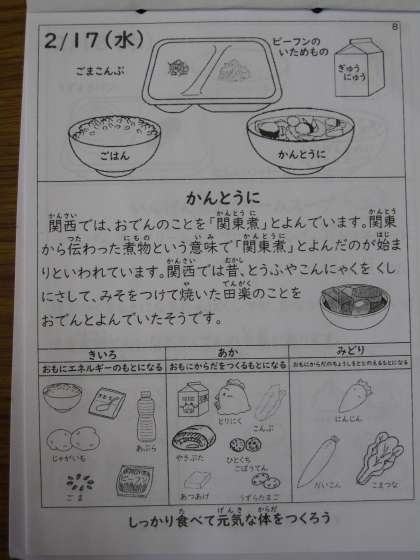 8
2/17(水)
ごまこんぶ
ビーフンの
いためもの
ぎゅう
にゅう
ごはん
かんとうに
かんとうに
関西では、おでんのことを「関東煮」とよんでいます。関東
から伝わった煮物という意味で「関東煮」とよんだのが始ま
りといわれています。関西では昔、とうふやこんにゃくをくし
にさして、みそをつけて焼いた田楽のことを
おでんとよんでいたそうです。
きいろ
あか
みどり
おもにエネルギーのもとになる
おもにからだをつくるもとになる
おもにからだのちょうしをととのえるもとになる
あぶら
じゃがいも
ごま
ビーフン
とりにく
こんぶ
やきぶた
ひとくち
ごぼうてん
あつあげ
うずらたまご
にんじん
だいこん
こまつな
しっかり食べて元気な体をつくろう